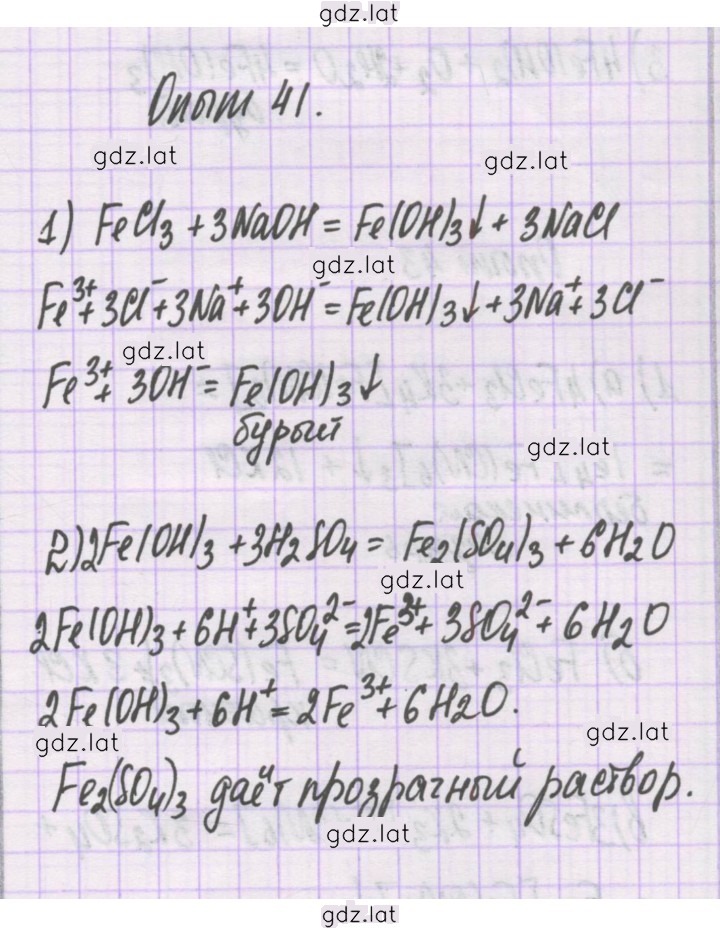 gdz.lat
Опыт 41.
gdz.lat gdz.lat
1) FeCl₃ + 3NaOH = Fe(OH)₃↓ + 3NaCl
gdz.lat
Fe³⁺ + 3Cl⁻ + 3Na⁺ + 3OH⁻ = Fe(OH)₃↓ + 3Na⁺ + 3Cl⁻
gdz.lat
Fe³⁺ + 3OH⁻ = Fe(OH)₃↓
бурый
gdz.lat
2) 2Fe(OH)₃ + 3H₂SO₄ = Fe₂(SO₄)₃ + 6H₂O
gdz.lat
2Fe(OH)₃ + 6H⁺ + 3SO₄²⁻ = 2Fe³⁺ + 3SO₄²⁻ + 6H₂O
2Fe(OH)₃ + 6H⁺ = 2Fe³⁺ + 6H₂O.
gdz.lat gdz.lat
Fe₂(SO₄)₃ даёт прозрачный раствор.
gdz.lat
gdz.lat